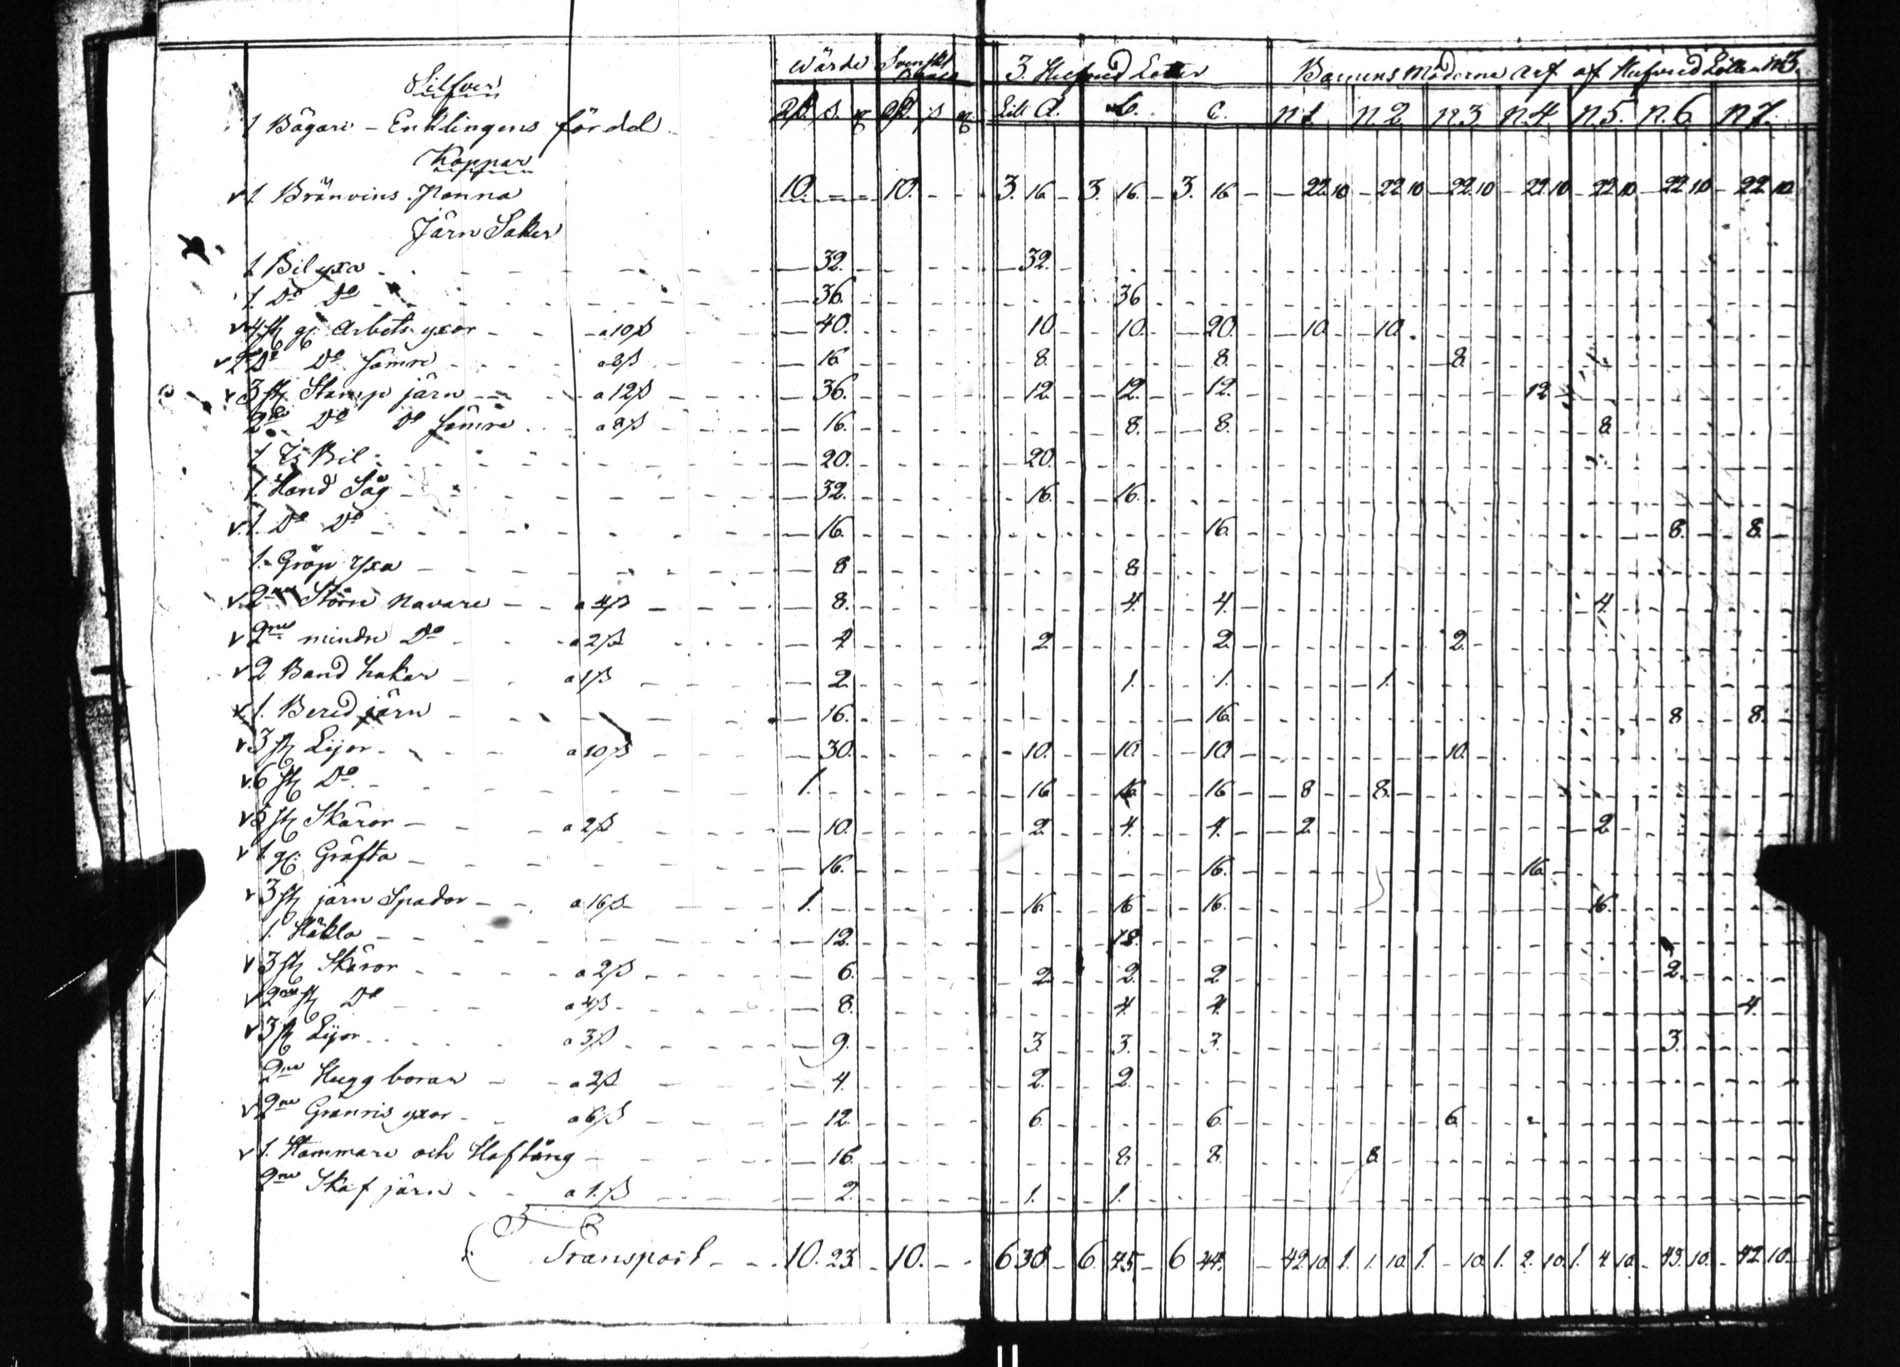 Silfver
wärde Svenskt 3. Hufvud Lotter Barnens Möderne Arf af Hufvud Lotten
Litt A. B. C. n1 n2 n.3 n.4 n.5. n.6 n7.
1 Bägare – Enklingens fördel
Koppar
v 1 Bränvins Panna 10. – – 10. – – 3. 16 – 3. 16. – 3. 16 – 22 10 – 22 10 – 22 10 – 22 10 – 22 10 – 22 10 – 22 10
Järn Saker
1 Bil yxa – 32. – 32.
1. Do Do – 36. 36
v 4 st gl. Arbets yxor a 10 ß – 40. 10 – 10. – 20. – 10. – 10.
v 2ne Do Sämre a 8 ß – 16 8. 8. 8.
v 3 st Stamp järn a 12 ß – 36. 12. 12. 12. 12
2ne Do Do Sämre a 8 ß – 16. 8. 8. 8.
1 Bil – 20. 20.
1. Hand Såg – 32. 16. 16.
v 1. Do Do – 16. 16. 8. 8.
1. Gröp Yxa – 8 8.
v 2ne Större Navare a 4 ß – 8. 4. 4. 4.
v 2ne mindre Do a 2 ß 4 2 2. 2.
v 2 Band hakar a 1 ß – 2. 1. 1. 1.
v 1. Bered järn – 16. 16. 8. 8.
v 3 st Lijor a 10 ß – 30. – 10. 10. 10. 10.
v 6 st Do 1. 16 16 16 – 8 8.
v 5 st Skäror a 2 ß – 10. 2. 4. 4. 2. 2.
v 1. gl. Gräfta – 16. 16. 16.
v 3 st järn Spador a 16 ß 1. 16. 16 16. 16.
1. Häkla – 12. 12.
v 3 st Skäror a 2 ß – 6. 2. 2. 2 2.
v 2ne st Do a 4 ß – 8. 4. 4. 4.
v 3 st Lijor a 3 ß – 9. 3. 3. 3. 3.
2ne Hugg borar a 2 ß – 4 2. 2.
v 2ne Granris yxor a 6 ß – 12. 6. 6. 6.
v 1. Hammare och Hoftång – 16. 8. 8. 8.
2ne Skaf järn a 1. ß – 2. 1. 1.
Transport 10. 23. 10. 6 38 6. 45 6 44. 42 10 1. 1. 10 1. – 10 1. 2. 10 1. 4 10 – 43. 10. – 42 10.